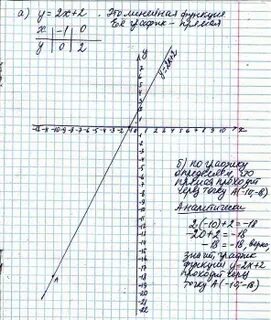 а) y = 2x+2. Это линейная функция
Её график - прямая
x | -1 | 0
y | 0 | 2
y
y=2x+2
x
A
б) по графику
определяем, что
прямая проходит
через точку A(-10;-18)
Аналитически
2·(-10)+2=-18
-20+2=-18
-18=-18, верно,
значит, график
функции y=2x+2
проходит через
точку A(-10;-18)